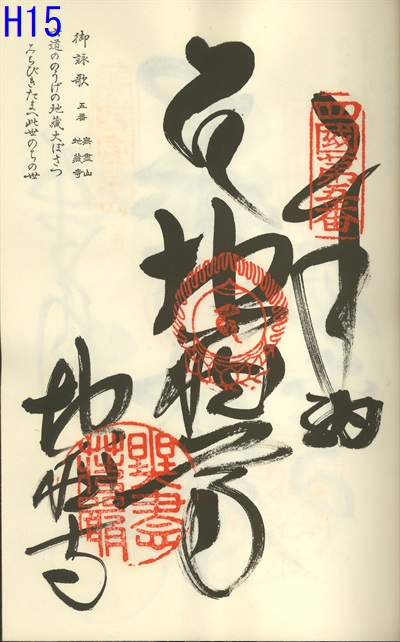 H15
四國第五番
奉納
地蔵尊
地蔵寺
御詠歌 五番 無盡山 地蔵寺
六道ののうげの地藏大ぼさつ
みちびきたまへ此世のちの世